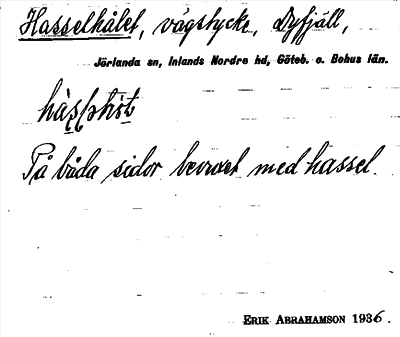 Hasselhålet, vägstycke, Dyfjäll,
Jörlanda sn, Inlands Nordre hd, Göteb. o. Bohus län.
På båda sidor bevuxet med hassel.
ERIK ABRAHAMSON 1936.